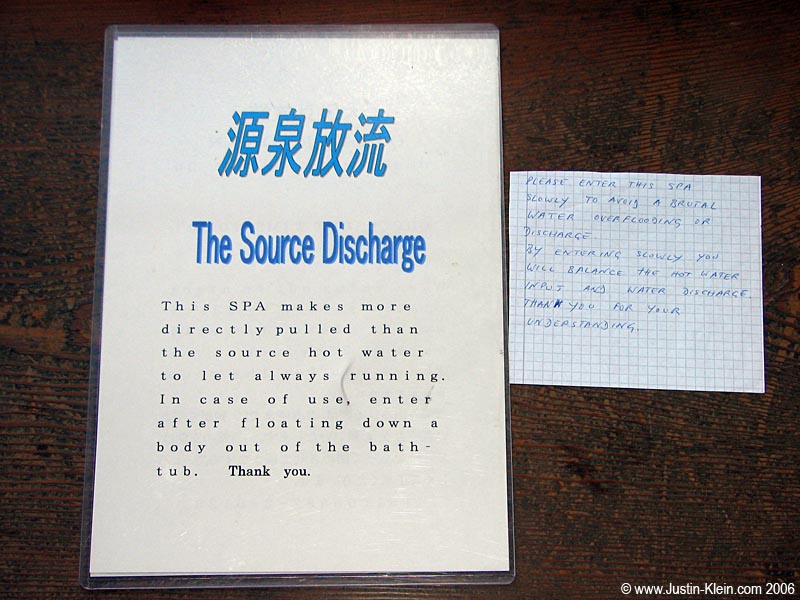 源泉放流
The Source Discharge
This SPA makes more
directly pulled than
the source hot water
to let always running.
In case of use, enter
after floating down a
body out of the bath-
tub. Thank you.
PLEASE ENTER THIS SPA
SLOWLY TO AVOID A BRUTAL
WATER OVERFLOODING OR
DISCHARGE
BY ENTERING SLOWLY YOU
WILL BALANCE THE HOT WATER
INPUT AND WATER DISCHARGE.
THANK YOU FOR YOUR
UNDERSTANDING.
© www.Justin-Klein.com 2006